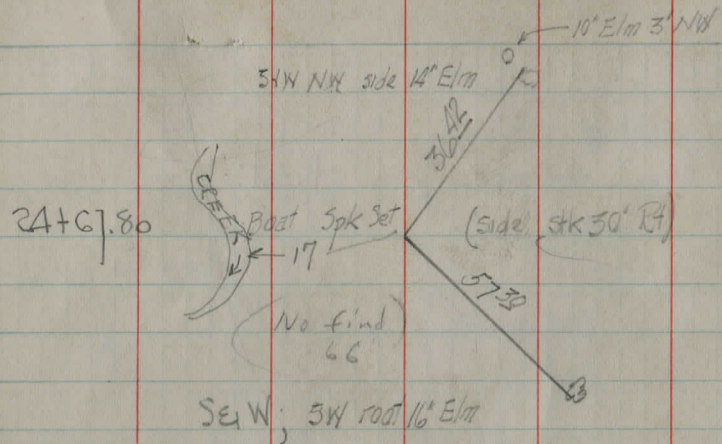 10" Elm 3' NW
S&W NW side 14" Elm
36.42
CREEK
24+67.80 Boat Spk Set (side stk 30' Rt)
17
57.39
(No find)
66
S&W; SW root 16" Elm